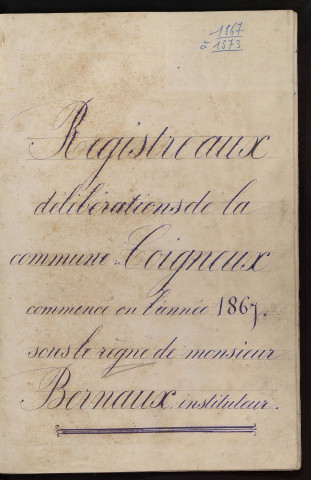 1867
à 1873
Registre aux
délibérations de la
commune „ Coigneux
commencé en l'année 1867.
sous le règne de monsieur
Bernaux, instituteur.